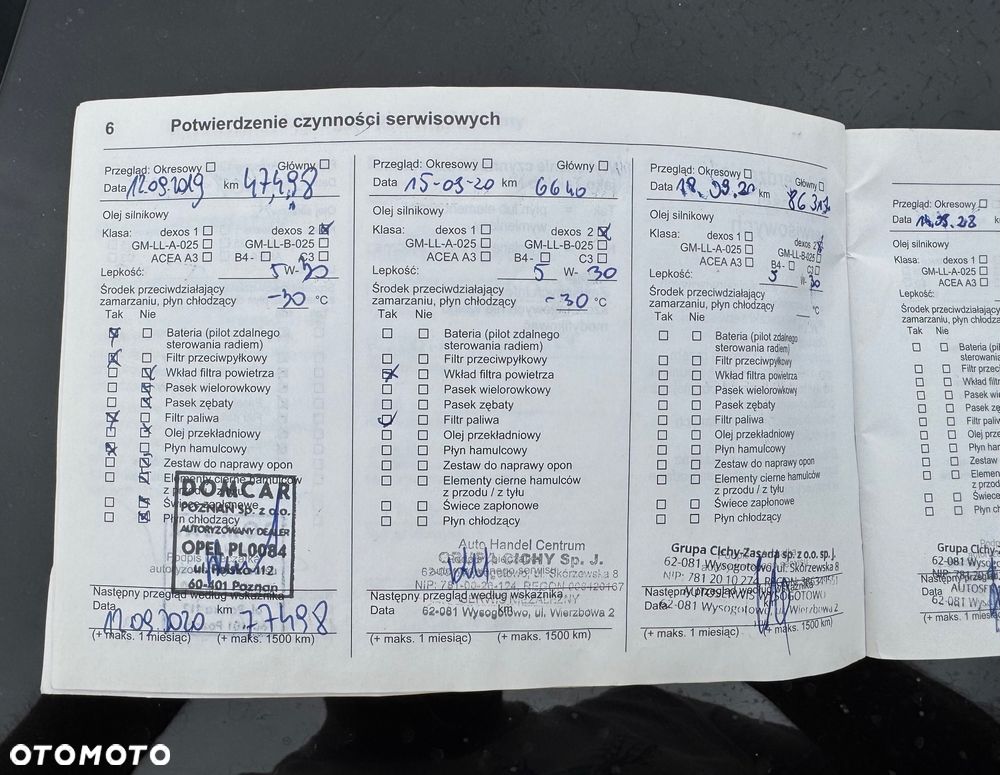 6 Potwierdzenie czynności serwisowych
Przegląd: Okresowy □ Główny □
Data 12.09.2019 km 47498
Olej silnikowy
Klasa: dexos 1 □ dexos 2 ☒
GM-LL-A-025 □ GM-LL-B-025 □
ACEA A3 □ B4 - □ C3 □
Lepkość: 5 W- 30
Środek przeciwdziałający
zamarzaniu, płyn chłodzący -30 °C
Tak Nie
Bateria (pilot zdalnego
sterowania radiem)
Filtr przeciwpyłkowy
Wkład filtra powietrza
Pasek wielorowkowy
Pasek zębaty
Filtr paliwa
Olej przekładniowy
Płyn hamulcowy
Zestaw do naprawy opon
Elementy cierne hamulców
Świece zapłonowe
Płyn chłodzący
DOMCAR
POZNAŃ sp. z o.o.
AUTORYZOWANY DEALER
OPEL PL0084
ul. Polska 112
60-401 Poznań
Następny przegląd według wskaźnika
Data km
12.09.2020 77498
(+ maks. 1 miesiąc) (+ maks. 1500 km)
Przegląd: Okresowy □ Główny □
Data 15-03-20 km 6640
Olej silnikowy
Klasa: dexos 1 □ dexos 2 ☒
GM-LL-A-025 □ GM-LL-B-025 □
ACEA A3 □ B4 - □ C3 □
Lepkość: 5 W- 30
Środek przeciwdziałający
zamarzaniu, płyn chłodzący -30 °C
Tak Nie
Bateria (pilot zdalnego
sterowania radiem)
Filtr przeciwpyłkowy
Wkład filtra powietrza
Pasek wielorowkowy
Pasek zębaty
Filtr paliwa
Olej przekładniowy
Płyn hamulcowy
Zestaw do naprawy opon
Elementy cierne hamulców
z przodu / z tyłu
Świece zapłonowe
Płyn chłodzący
Auto Handel Centrum
GRUPA CICHY Sp. J.
62-081 Wysogotowo, ul. Skórzewska 8
Następny przegląd według wskaźnika
Data km
62-081 Wysogotowo, ul. Wierzbowa 2
(+ maks. 1 miesiąc) (+ maks. 1500 km)
Przegląd: Okresowy □ Główny □
Data km
Olej silnikowy
Klasa: dexos 1 □ dexos 2
GM-LL-A-025 □ GM-LL-B-025 □
ACEA A3 □ B4 - □ C3 □
Lepkość: 5 W- 30
Środek przeciwdziałający
zamarzaniu, płyn chłodzący °C
Tak Nie
Bateria (pilot zdalnego
sterowania radiem)
Filtr przeciwpyłkowy
Wkład filtra powietrza
Pasek wielorowkowy
Pasek zębaty
Filtr paliwa
Olej przekładniowy
Płyn hamulcowy
Zestaw do naprawy opon
Elementy cierne hamulców
z przodu / z tyłu
Świece zapłonowe
Płyn chłodzący
Grupa Cichy-Zasada sp. z o.o. sp. j.
62-081 Wysogotowo, ul. Skórzewska 8
Następny przegląd według wskaźnika
Data
62-081 Wysogotowo, ul. Wierzbowa 2
(+ maks. 1 miesiąc) (+ maks. 1500 km)
Przegląd: Okresowy □
Data
Olej silnikowy
Klasa: dexos 1 □
GM-LL-A-025 □
ACEA A3 □
Lepkość:
Środek przeciwdziałający
zamarzaniu, płyn chłodzą
Tak Nie
Bateria (pil
sterowania
Filtr przec
Wkład filt
Pasek wie
Pasek zęb
Filtr paliw
Olej prze
Płyn ham
Zestaw
Elementy
z przodu
Świece z
Płyn ch
Grupa Cichy-
62-081 Wysogo
(+ maks. 1 miesiąc)
OTOMOTO